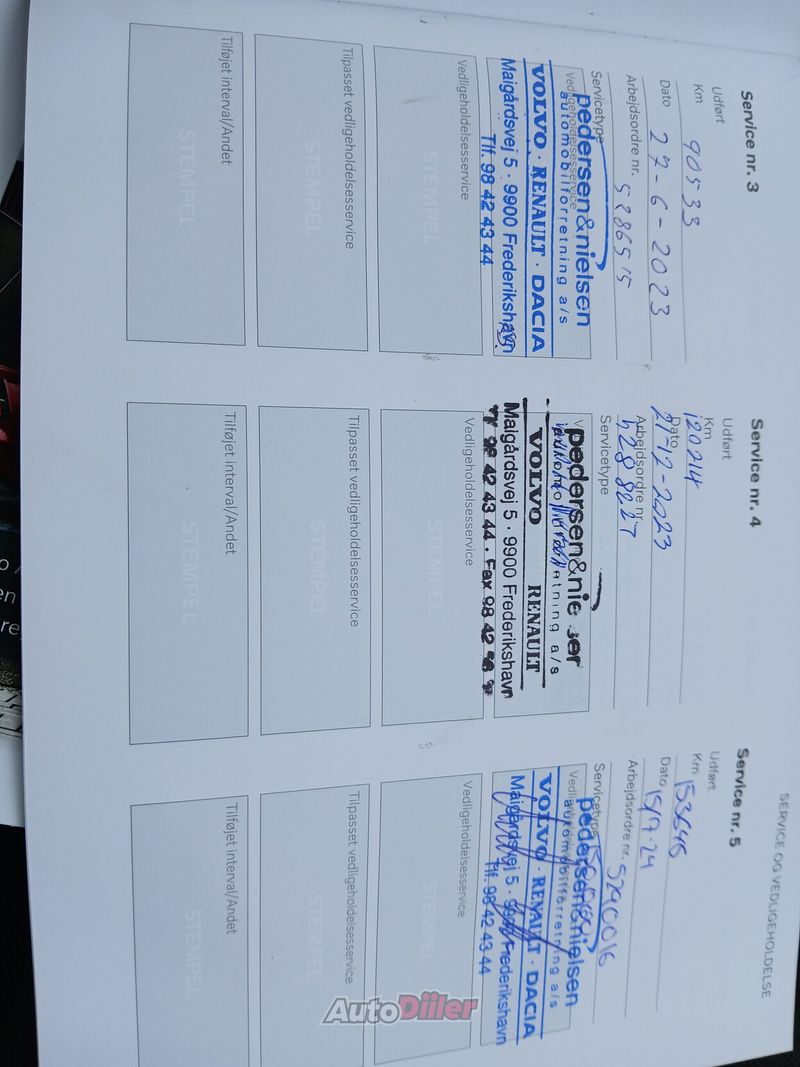 SERVICE OG VEDLIGEHOLDELSE
Service nr. 3
Udført
Km 90533
Dato 27-6-2023
Arbejdsordre nr. 5286515
Servicetype
Vedligeholdelsesservice
pedersen&nielsen
automobilforretning a/s
VOLVO · RENAULT · DACIA
Maigårdsvej 5 · 9900 Frederikshavn
Tlf. 98 42 43 44
Vedligeholdelsesservice
STEMPEL
Tilpasset vedligeholdelsesservice
STEMPEL
Tilføjet interval/Andet
STEMPEL
Service nr. 4
Udført
Km 120214
Dato 21-12-2023
Arbejdsordre nr.
Servicetype
VOLVO RENAULT
Maigårdsvej 5 · 9900 Frederikshavn
Vedligeholdelsesservice
STEMPEL
Tilpasset vedligeholdelsesservice
STEMPEL
Tilføjet interval/Andet
STEMPEL
Service nr. 5
Udført
Km
Dato 15/7-24
Arbejdsordre nr. 5290016
Servicetype
pedersen&nielsen
automobilforretning a/s
VOLVO · RENAULT · DACIA
Maigårdsvej 5 · 9900 Frederikshavn
Tlf. 98 42 43 44
Vedligeholdelsesservice
STEMPEL
Tilpasset vedligeholdelsesservice
STEMPEL
Tilføjet interval/Andet
STEMPEL
AutoDiller